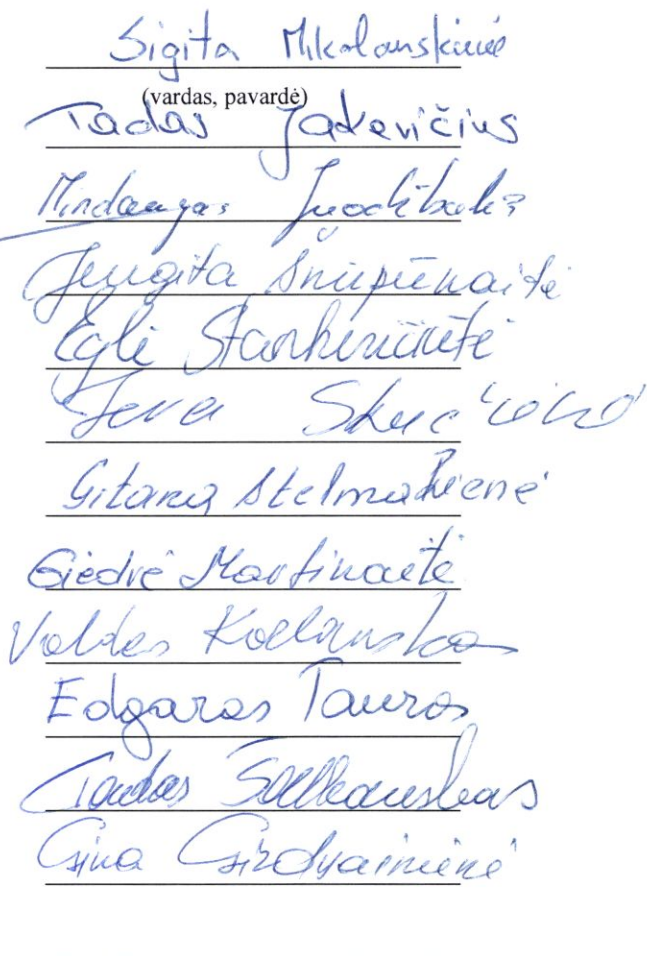 Sigita Mikolauskienė
(vardas, pavardė)
Tadas Jakevičius
Mindaugas Juodžbalis
Jurgita Šniepienaitė
Eglė Stankevičiūtė
Ieva
Gitana Stelmakienė
Giedrė Martinaitė
Valdas
Edgaras Tauras
Tadas Šalkauskas
Gina Girdvainienė